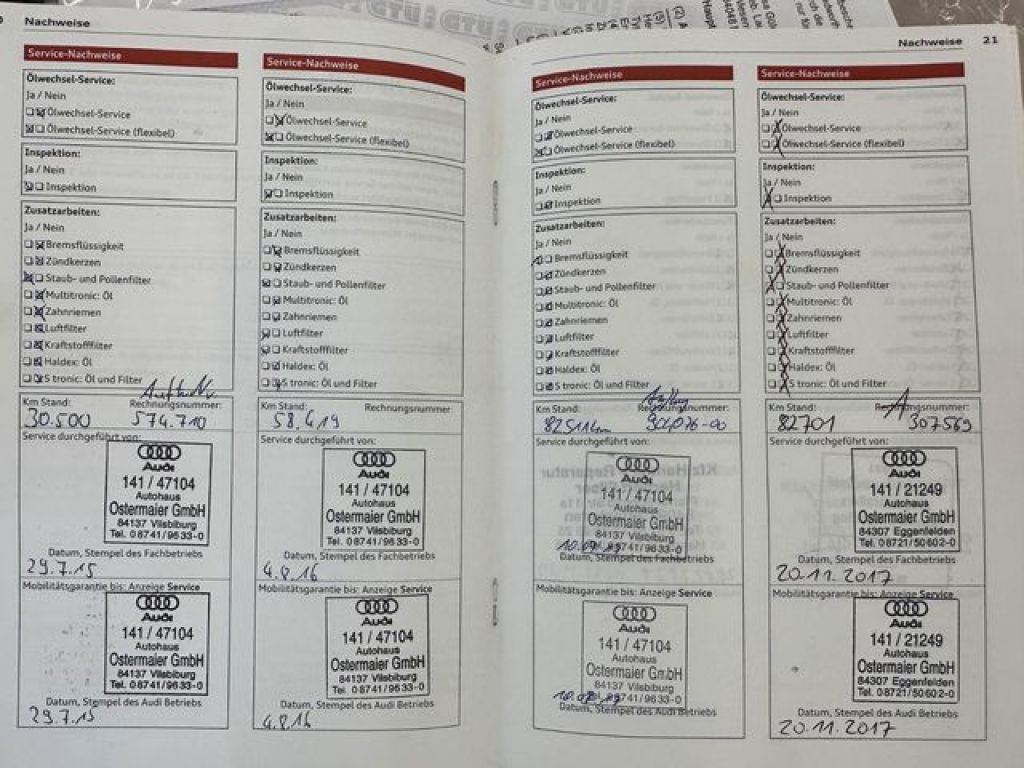 Nachweise
Service-Nachweise
Ölwechsel-Service:
Ja / Nein
Ölwechsel-Service
Ölwechsel-Service (flexibel)
Inspektion:
Ja / Nein
Inspektion
Zusatzarbeiten:
Ja / Nein
Bremsflüssigkeit
Zündkerzen
Staub- und Pollenfilter
Multitronic: Öl
Zahnriemen
Luftfilter
Kraftstofffilter
Haldex: Öl
S tronic: Öl und Filter
Km Stand: Rechnungsnummer:
30.500 574.710
Service durchgeführt von:
Audi
141 / 47104
Autohaus
Ostermaier GmbH
84137 Vilsbiburg
Tel. 08741/9633-0
Datum, Stempel des Fachbetriebs
29.7.15
Mobilitätsgarantie bis: Anzeige Service
Audi
141 / 47104
Autohaus
Ostermaier GmbH
84137 Vilsbiburg
Tel. 08741/9633-0
Datum, Stempel des Audi Betriebs
29.7.15
Service-Nachweise
Ölwechsel-Service:
Ja / Nein
Ölwechsel-Service
Ölwechsel-Service (flexibel)
Inspektion:
Ja / Nein
Inspektion
Zusatzarbeiten:
Ja / Nein
Bremsflüssigkeit
Zündkerzen
Staub- und Pollenfilter
Multitronic: Öl
Zahnriemen
Luftfilter
Kraftstofffilter
Haldex: Öl
S tronic: Öl und Filter
Km Stand: Rechnungsnummer:
58.419
Service durchgeführt von:
Audi
141 / 47104
Autohaus
Ostermaier GmbH
84137 Vilsbiburg
Tel. 08741/9633-0
Datum, Stempel des Fachbetriebs
4.8.16
Mobilitätsgarantie bis: Anzeige Service
Audi
141 / 47104
Autohaus
Ostermaier GmbH
84137 Vilsbiburg
Tel. 08741/9633-0
Datum, Stempel des Audi Betriebs
4.8.16
Nachweise 21
Service-Nachweise
Ölwechsel-Service:
Ja / Nein
Ölwechsel-Service
Ölwechsel-Service (flexibel)
Inspektion:
Ja / Nein
Inspektion
Zusatzarbeiten:
Ja / Nein
Bremsflüssigkeit
Zündkerzen
Staub- und Pollenfilter
Multitronic: Öl
Zahnriemen
Luftfilter
Kraftstofffilter
Haldex: Öl
S tronic: Öl und Filter
Km Stand: Rechnungsnummer:
82511km 304076-00
Service durchgeführt von:
Audi
141 / 47104
Autohaus
Ostermaier GmbH
84137 Vilsbiburg
08741/9633-0
Datum, Stempel des Fachbetriebs
Mobilitätsgarantie bis: Anzeige Service
Audi
141 / 47104
Autohaus
Ostermaier GmbH
84137 Vilsbiburg
08741/9633-0
Datum, Stempel des Audi Betriebs
Service-Nachweise
Ölwechsel-Service:
Ja / Nein
Ölwechsel-Service
Ölwechsel-Service (flexibel)
Inspektion:
Ja / Nein
Inspektion
Zusatzarbeiten:
Ja / Nein
Bremsflüssigkeit
Zündkerzen
Staub- und Pollenfilter
Multitronic: Öl
Zahnriemen
Luftfilter
Kraftstofffilter
Haldex: Öl
S tronic: Öl und Filter
Km Stand: Rechnungsnummer:
82701 307569
Service durchgeführt von:
Audi
141 / 21249
Autohaus
Ostermaier GmbH
84307 Eggenfelden
Tel. 08721/50602-0
Datum, Stempel des Fachbetriebs
20.11.2017
Mobilitätsgarantie bis: Anzeige Service
Audi
141 / 21249
Autohaus
Ostermaier GmbH
84307 Eggenfelden
Tel. 08721/50602-0
Datum, Stempel des Audi Betriebs
20.11.2017